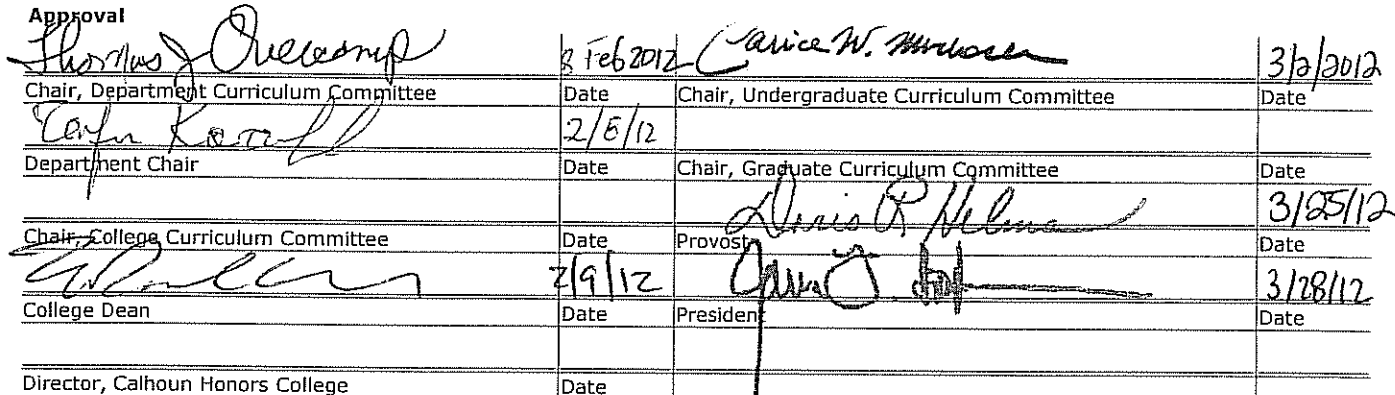 Approval
Thomas J Overcamp 8 Feb 2012 Janice W. Murdoch 3/2/2012
Chair, Department Curriculum Committee Date Chair, Undergraduate Curriculum Committee Date
2/8/12
Department Chair Date Chair, Graduate Curriculum Committee Date
Doris R Helms 3/25/12
Chair, College Curriculum Committee Date Provost Date
2/9/12 3/28/12
College Dean Date President Date
Director, Calhoun Honors College Date